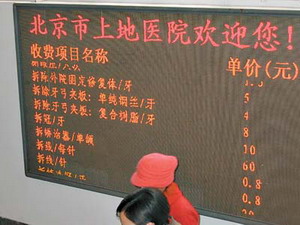 北京市上地医院欢迎您!
收费项目名称 单价(元)
拆除外院固定修复体/牙
拆除牙弓夹板: 单纯钢丝/牙 5
拆除牙弓夹板: 复合树脂/牙 4
拆冠/牙 8
拆矫治器/单颌 10
拆线/每针 60
拆线/针 0.8
0.8